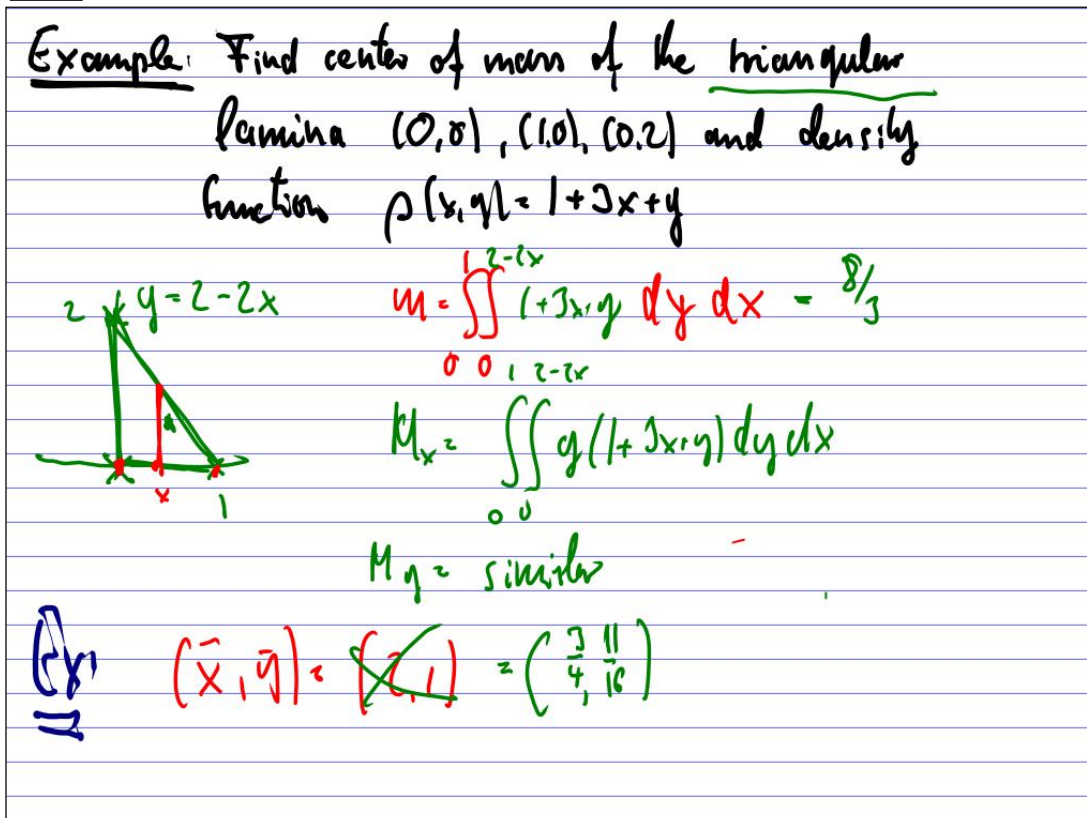 Example: Find center of mass of the triangular
lamina (0,0), (1,0), (0,2) and density
function ρ(x,y) = 1+3x+y
2 y = 2-2x
x
1
m = ∫₀¹ ∫₀^{2-2x} 1+3x+y dy dx = 8/3
M_x = ∫₀¹ ∫₀^{2-2x} y(1+3x+y) dy dx
M_y = similar
Ex: (x̄, ȳ) = = (3/4, 11/16)